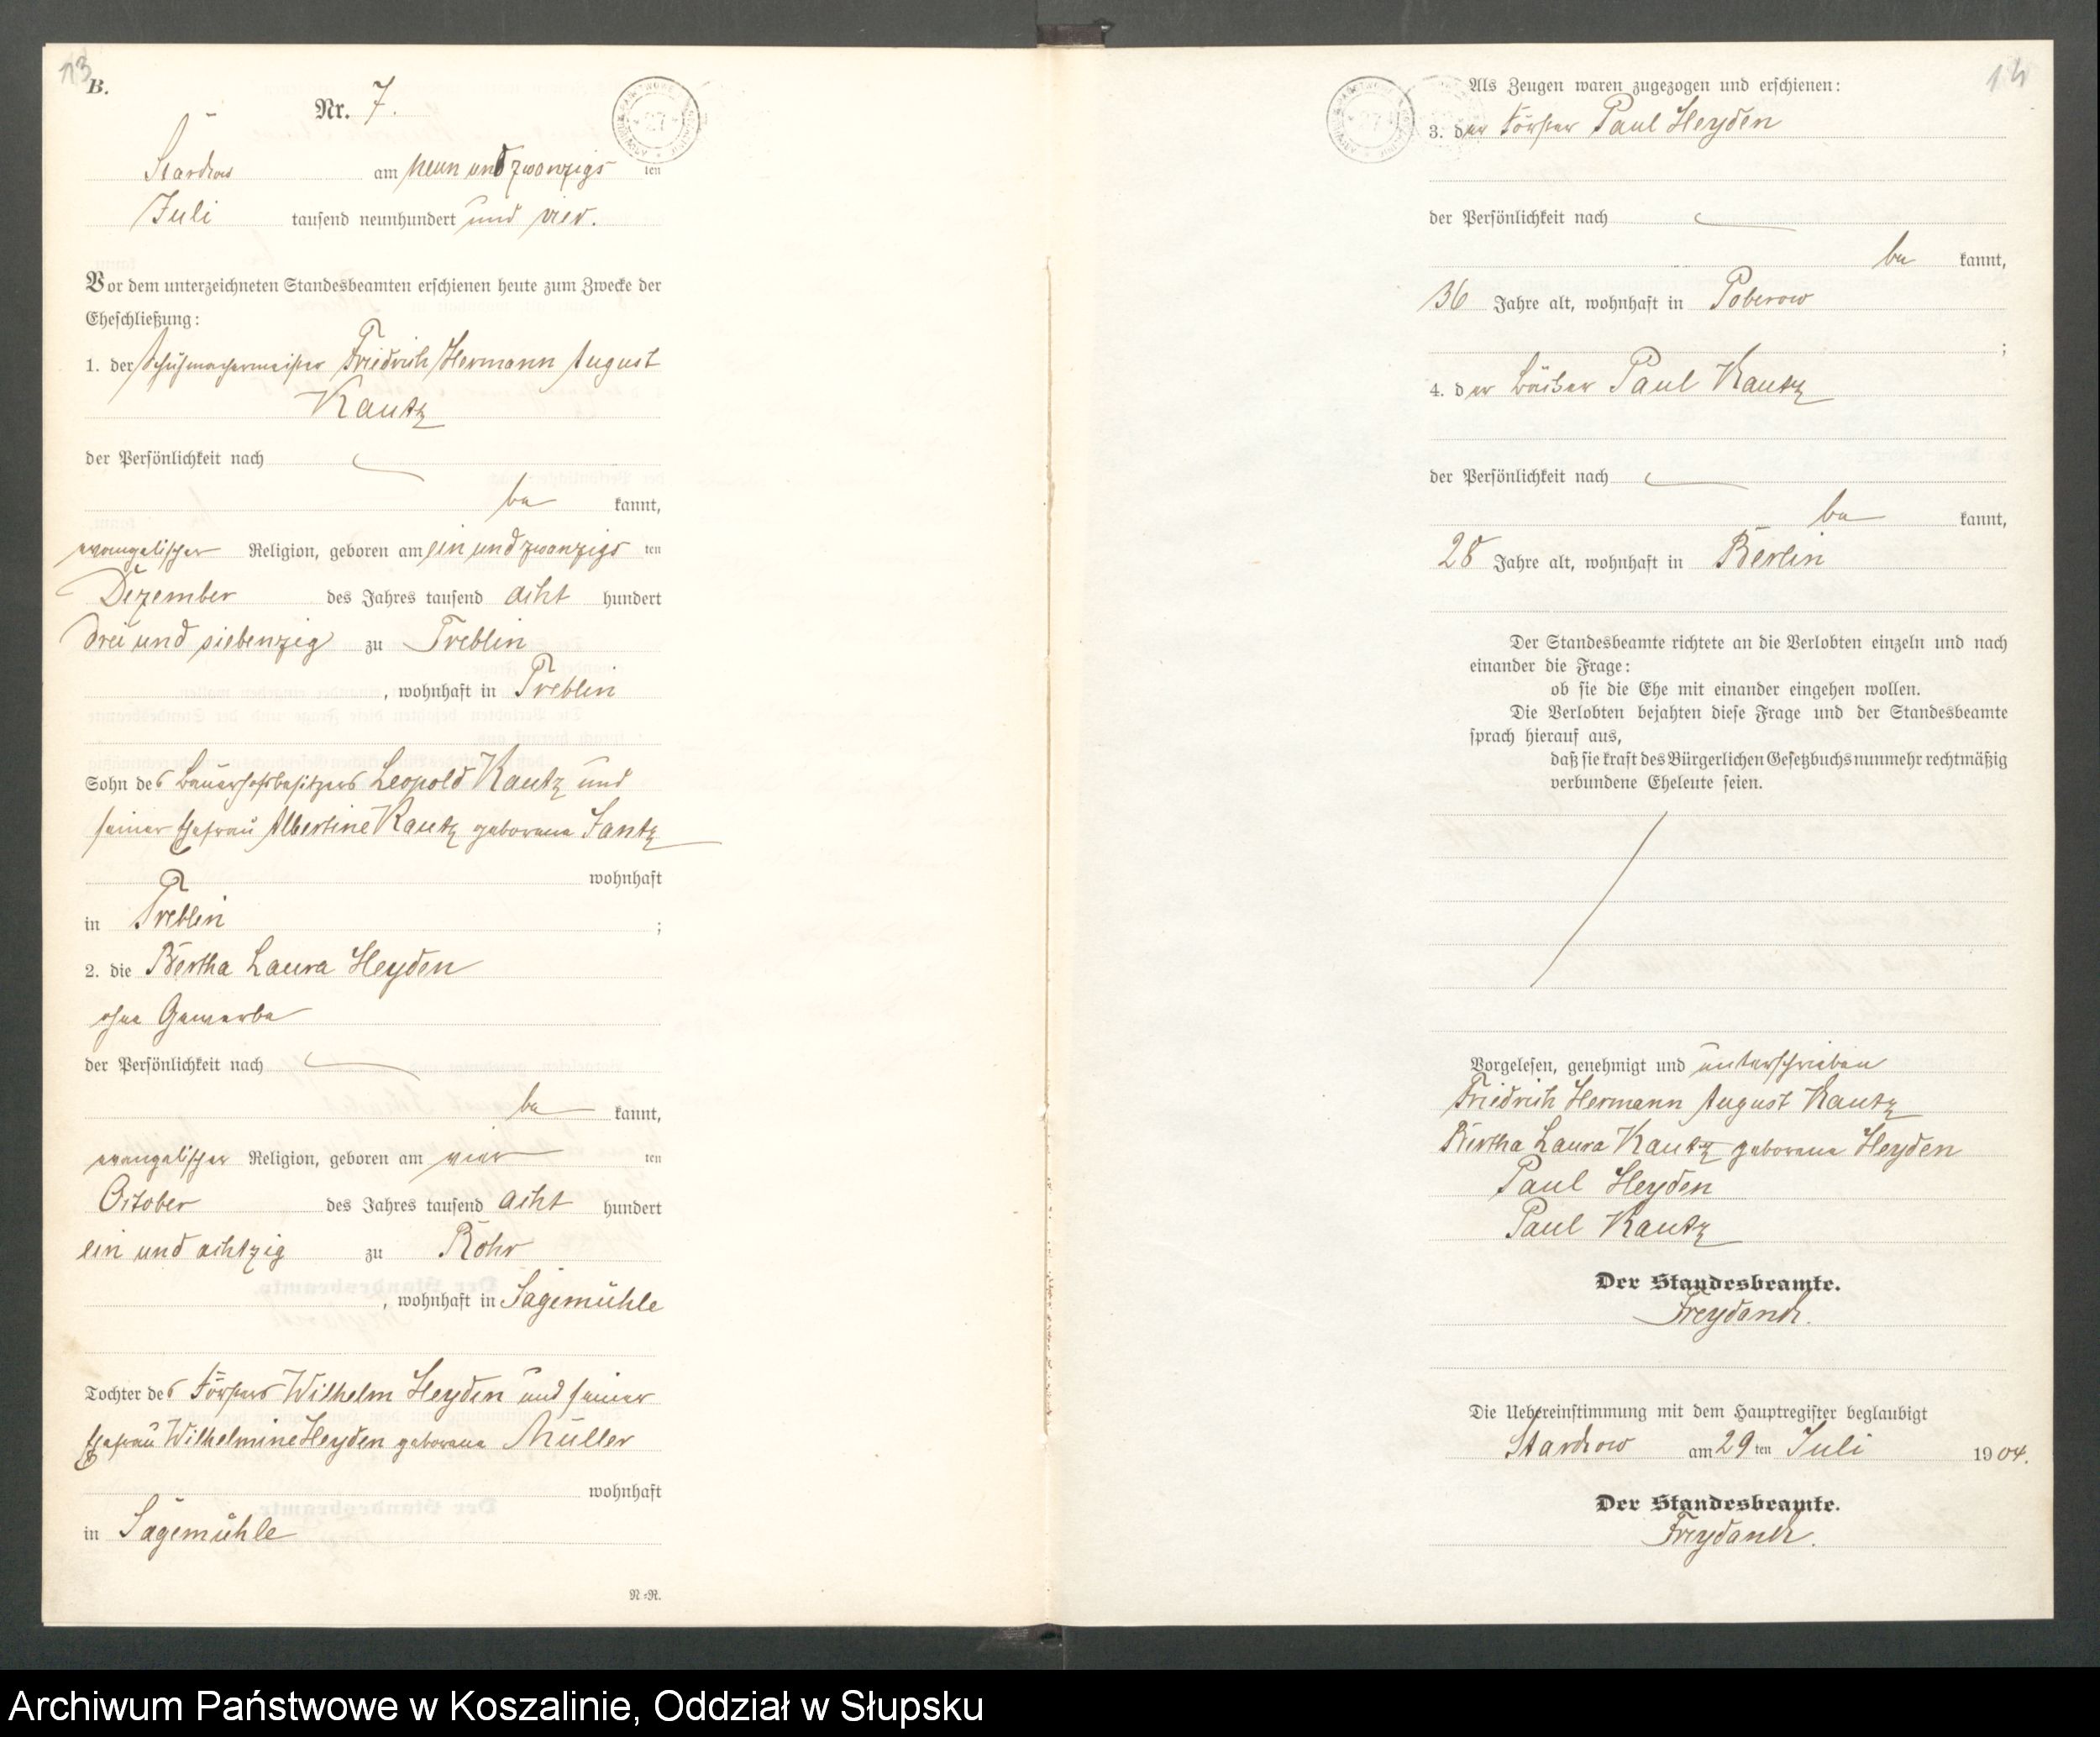 13
B.
Nr. 7.
Starckow am neun und zwanzigs ten
Juli tausend neunhundert und vier.
Vor dem unterzeichneten Standesbeamten erschienen heute zum Zwecke der
Eheschließung:
1. der Schuhmachermeister Friedrich Hermann August
Kautz
der Persönlichkeit nach
be kannt,
evangelischer Religion, geboren am ein und zwanzigs ten
Dezember des Jahres tausend acht hundert
drei und siebenzig zu Treblin
, wohnhaft in Treblin
Sohn des Bauerhofsbesitzers Leopold Kautz und
seiner Ehefrau Albertine Kautz geborene Jantz
wohnhaft
in Treblin ;
2. die Bertha Laura Heyden
ohne Gewerbe
der Persönlichkeit nach
be kannt,
evangelischer Religion, geboren am vier ten
October des Jahres tausend acht hundert
ein und achtzig zu Rohr
, wohnhaft in Sägemühle
Tochter des Försters Wilhelm Heyden und seiner
Ehefrau Wilhelmine Heyden geborene Müller
wohnhaft
in Sägemühle
N=R.
14
Als Zeugen waren zugezogen und erschienen:
3. der Förster Paul Heyden
der Persönlichkeit nach
be kannt,
36 Jahre alt, wohnhaft in Poberow
;
4. der Bäcker Paul Kautz
der Persönlichkeit nach
be kannt,
28 Jahre alt, wohnhaft in Berlin
Der Standesbeamte richtete an die Verlobten einzeln und nach
einander die Frage:
ob sie die Ehe mit einander eingehen wollen.
Die Verlobten bejahten diese Frage und der Standesbeamte
sprach hierauf aus,
daß sie kraft des Bürgerlichen Gesetzbuchs nunmehr rechtmäßig
verbundene Eheleute seien.
Vorgelesen, genehmigt und unterschrieben
Friedrich Hermann August Kautz
Bertha Laura Kautz geborene Heyden
Paul Heyden
Paul Kautz
Der Standesbeamte.
Freydanck.
Die Uebereinstimmung mit dem Hauptregister beglaubigt
Starckow am 29 ten Juli 1904.
Der Standesbeamte.
Freydanck.
Archiwum Państwowe w Koszalinie, Oddział w Słupsku